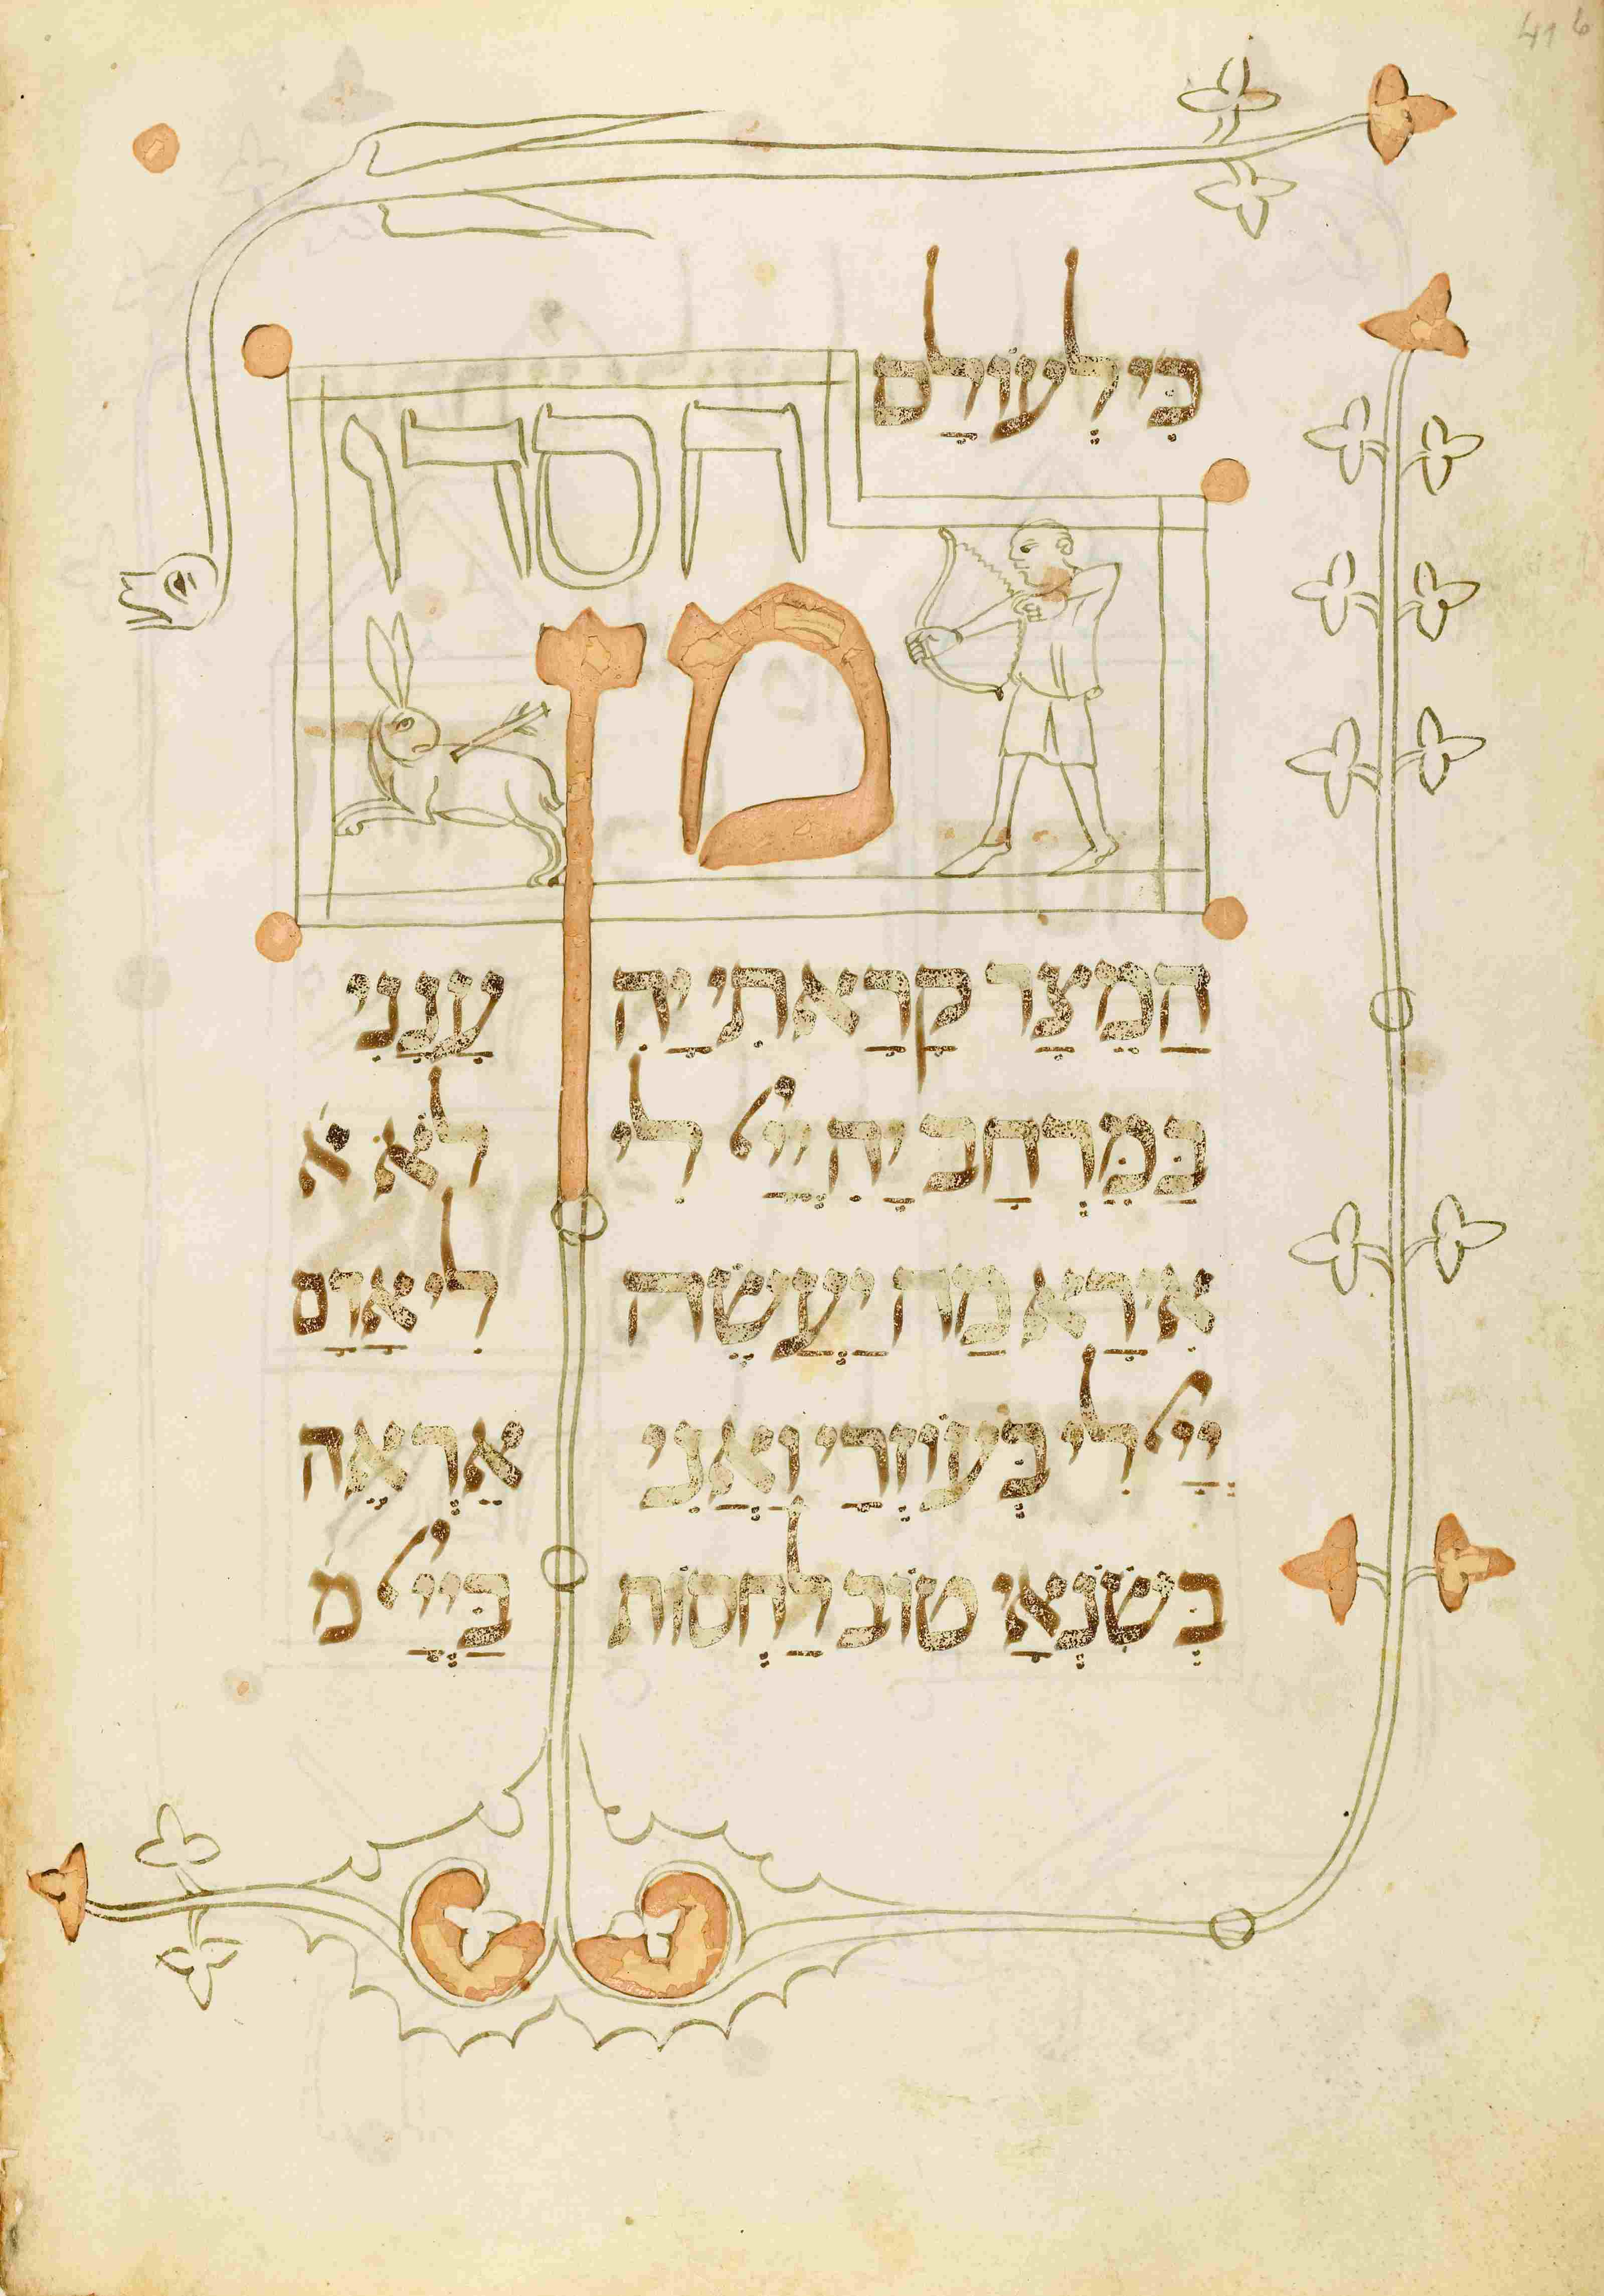 41 b
כִּי לְעוֹלָם
חסדו
מן
הַמֵצַר קָרָאתִי יָהּ עָנָנִי
בַּמֶּרְחַב יָהּ יְיָ לִי לֹא א
אִירָא מַה יַעֲשֶׂה לִי אָדָם
יְיָ לִי בְּעוֹזְרָי וַאֲנִי אֶרְאֶה
בְּשׂנְאָי טוֹב לַחֲסוֹת בַּיְיָ מ